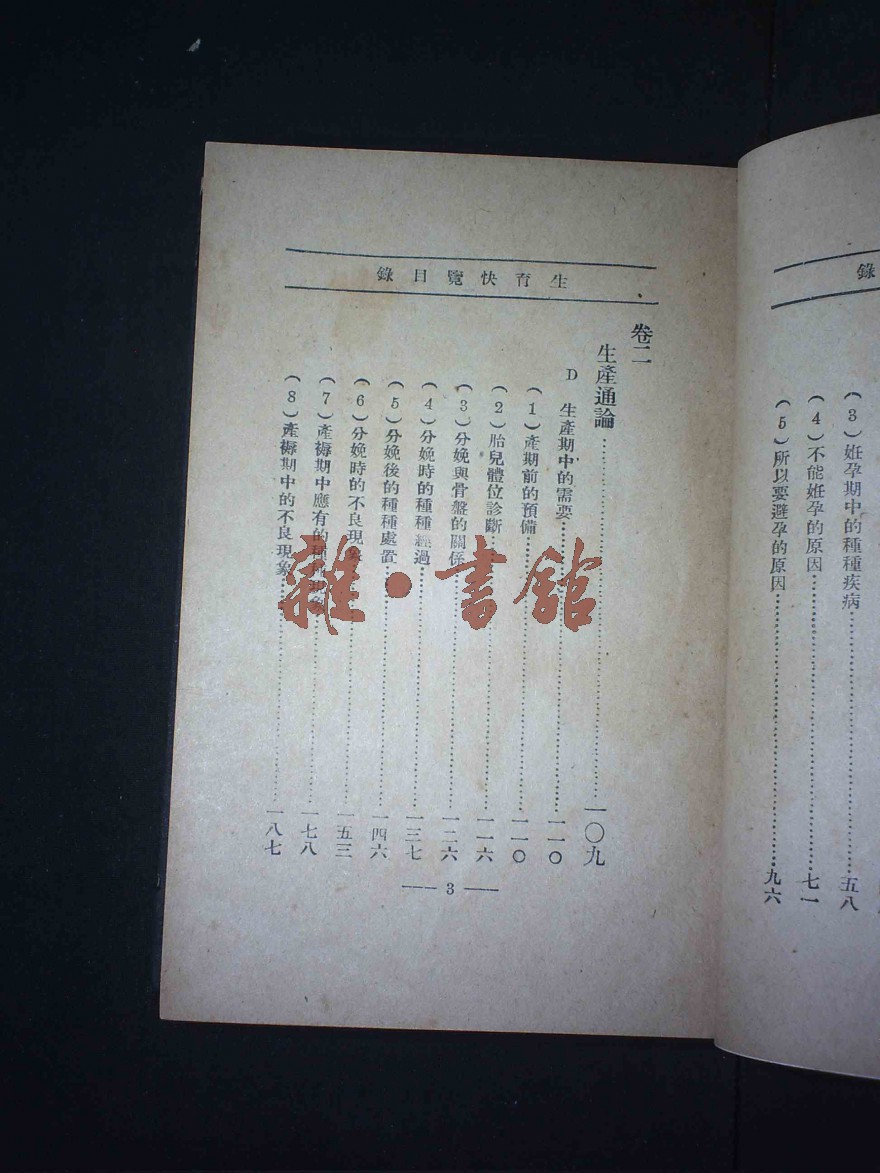 錄
(3)妊孕期中的種種疾病……五八
(4)不能妊孕的原因……七一
(5)所以要避孕的原因……九六
生育快覽目錄
卷二
生產通論……一〇九
D 生產期中的需要……一一〇
(1)產期前的預備……一一〇
(2)胎兒體位診斷……一一六
(3)分娩與骨盤的關係……一二六
(4)分娩時的種種經過……一三七
(5)分娩後的種種處置……一四六
(6)分娩時的不良現象……一五三
(7)產褥期中應有的種種現象……一七八
(8)產褥期中的不良現象……一八七
— 3 —
雜·書館